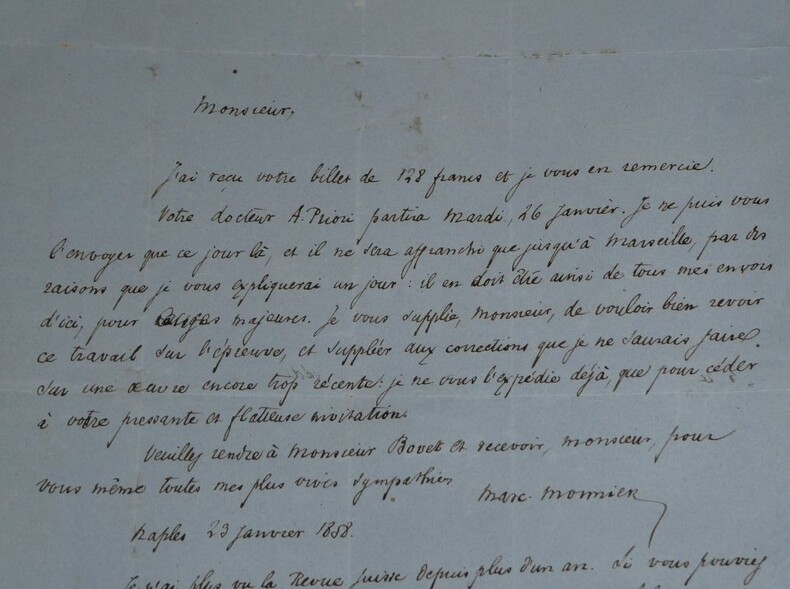 Monsieur,
J'ai reçu votre billet de 128 francs et je vous en remercie.
Votre docteur A. Priori partira Mardi, 26 Janvier. Je ne puis vous
l'envoyer que ce jour là, et il ne sera affranchi que jusqu'à Marseille, par des
raisons que je vous expliquerai un jour : il en doit être ainsi de tous mes envois
d'ici, pour majeures. Je vous supplie, Monsieur, de vouloir bien revoir
ce travail sur l'épreuve, et suppléer aux corrections que je ne saurais faire
sur une œuvre encore trop récente : je ne vous l'expédie déjà, que pour céder
à votre pressante et flatteuse invitation.
Veuillez rendre à Monsieur Bovet et recevoir, Monsieur, pour
vous même toutes mes plus vives sympathies
Marc-Monnier
Naples 23 Janvier 1858.
Je n'ai plus vu la Revue Suisse depuis plus d'un an. Si vous pouviez